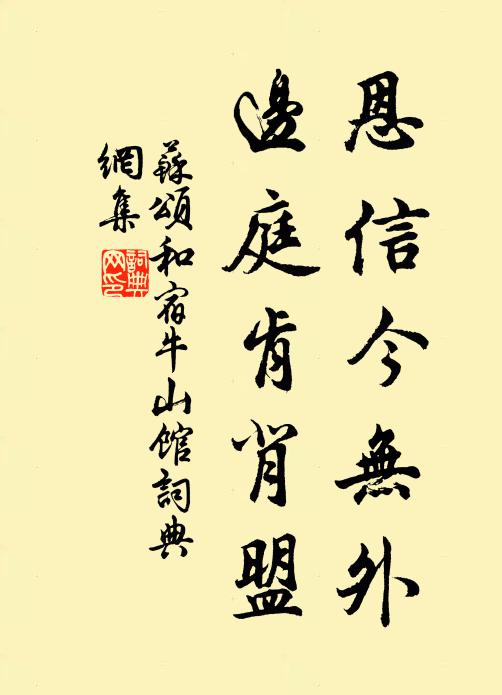 恩信今無外
邊庭肯背盟
蘇頌和宿牛山館詞典
網集
詞典
网印